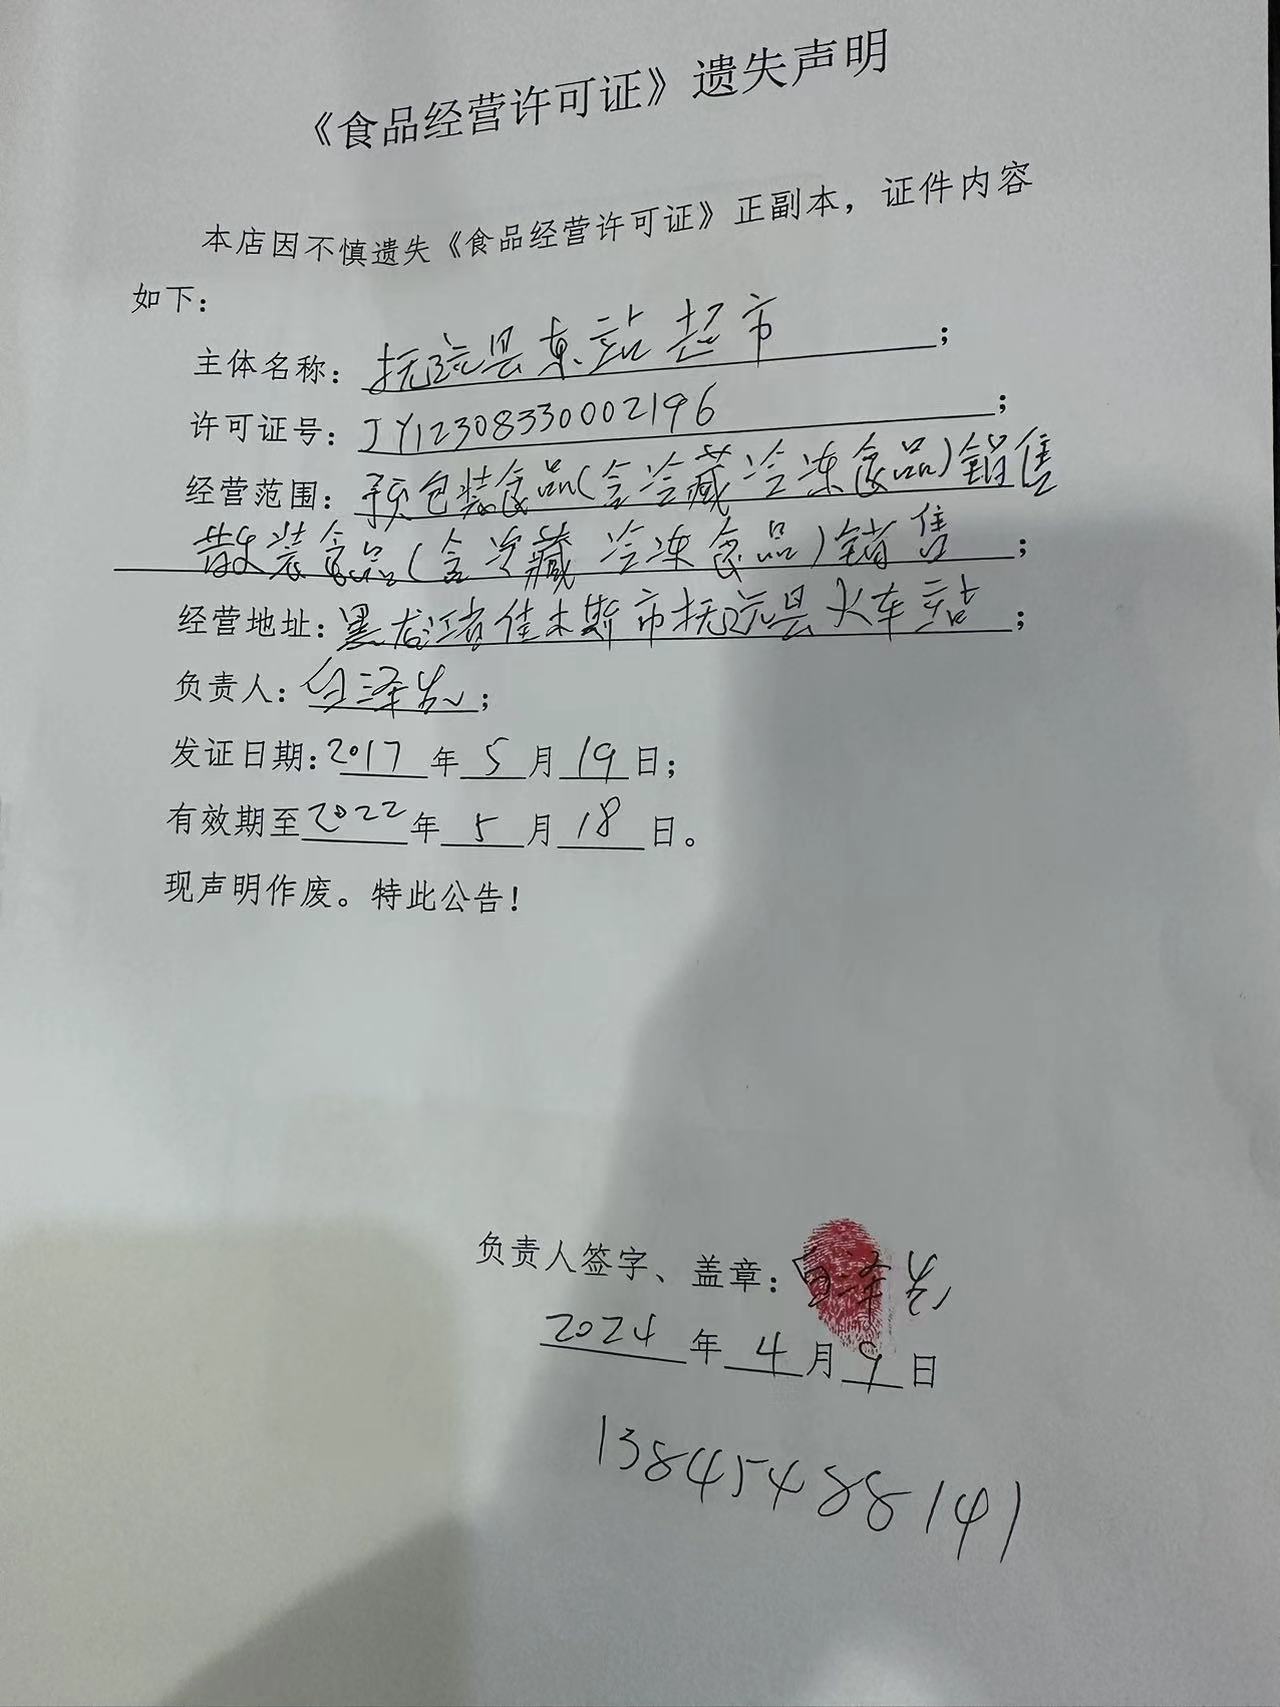 《食品经营许可证》遗失声明
本店因不慎遗失《食品经营许可证》正副本，证件内容
如下：
主体名称：抚远县东站超市；
许可证号：JY12308330002196；
经营范围：预包装食品(含冷藏冷冻食品)销售
散装食品(含冷藏冷冻食品)销售；
经营地址：黑龙江省佳木斯市抚远县火车站；
负责人：白泽发；
发证日期：2017年5月19日；
有效期至2022年5月18日。
现声明作废。特此公告！
负责人签字、盖章：白泽发
2024年4月9日
13845488141